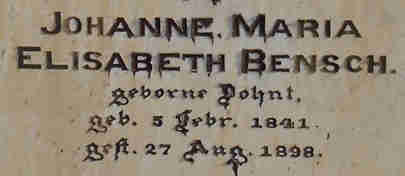 JOHANNE. MARIA
ELISABETH BENSCH.
geborne Pohnt,
geb. 5 Febr. 1841.
gest. 27 Aug. 1898.